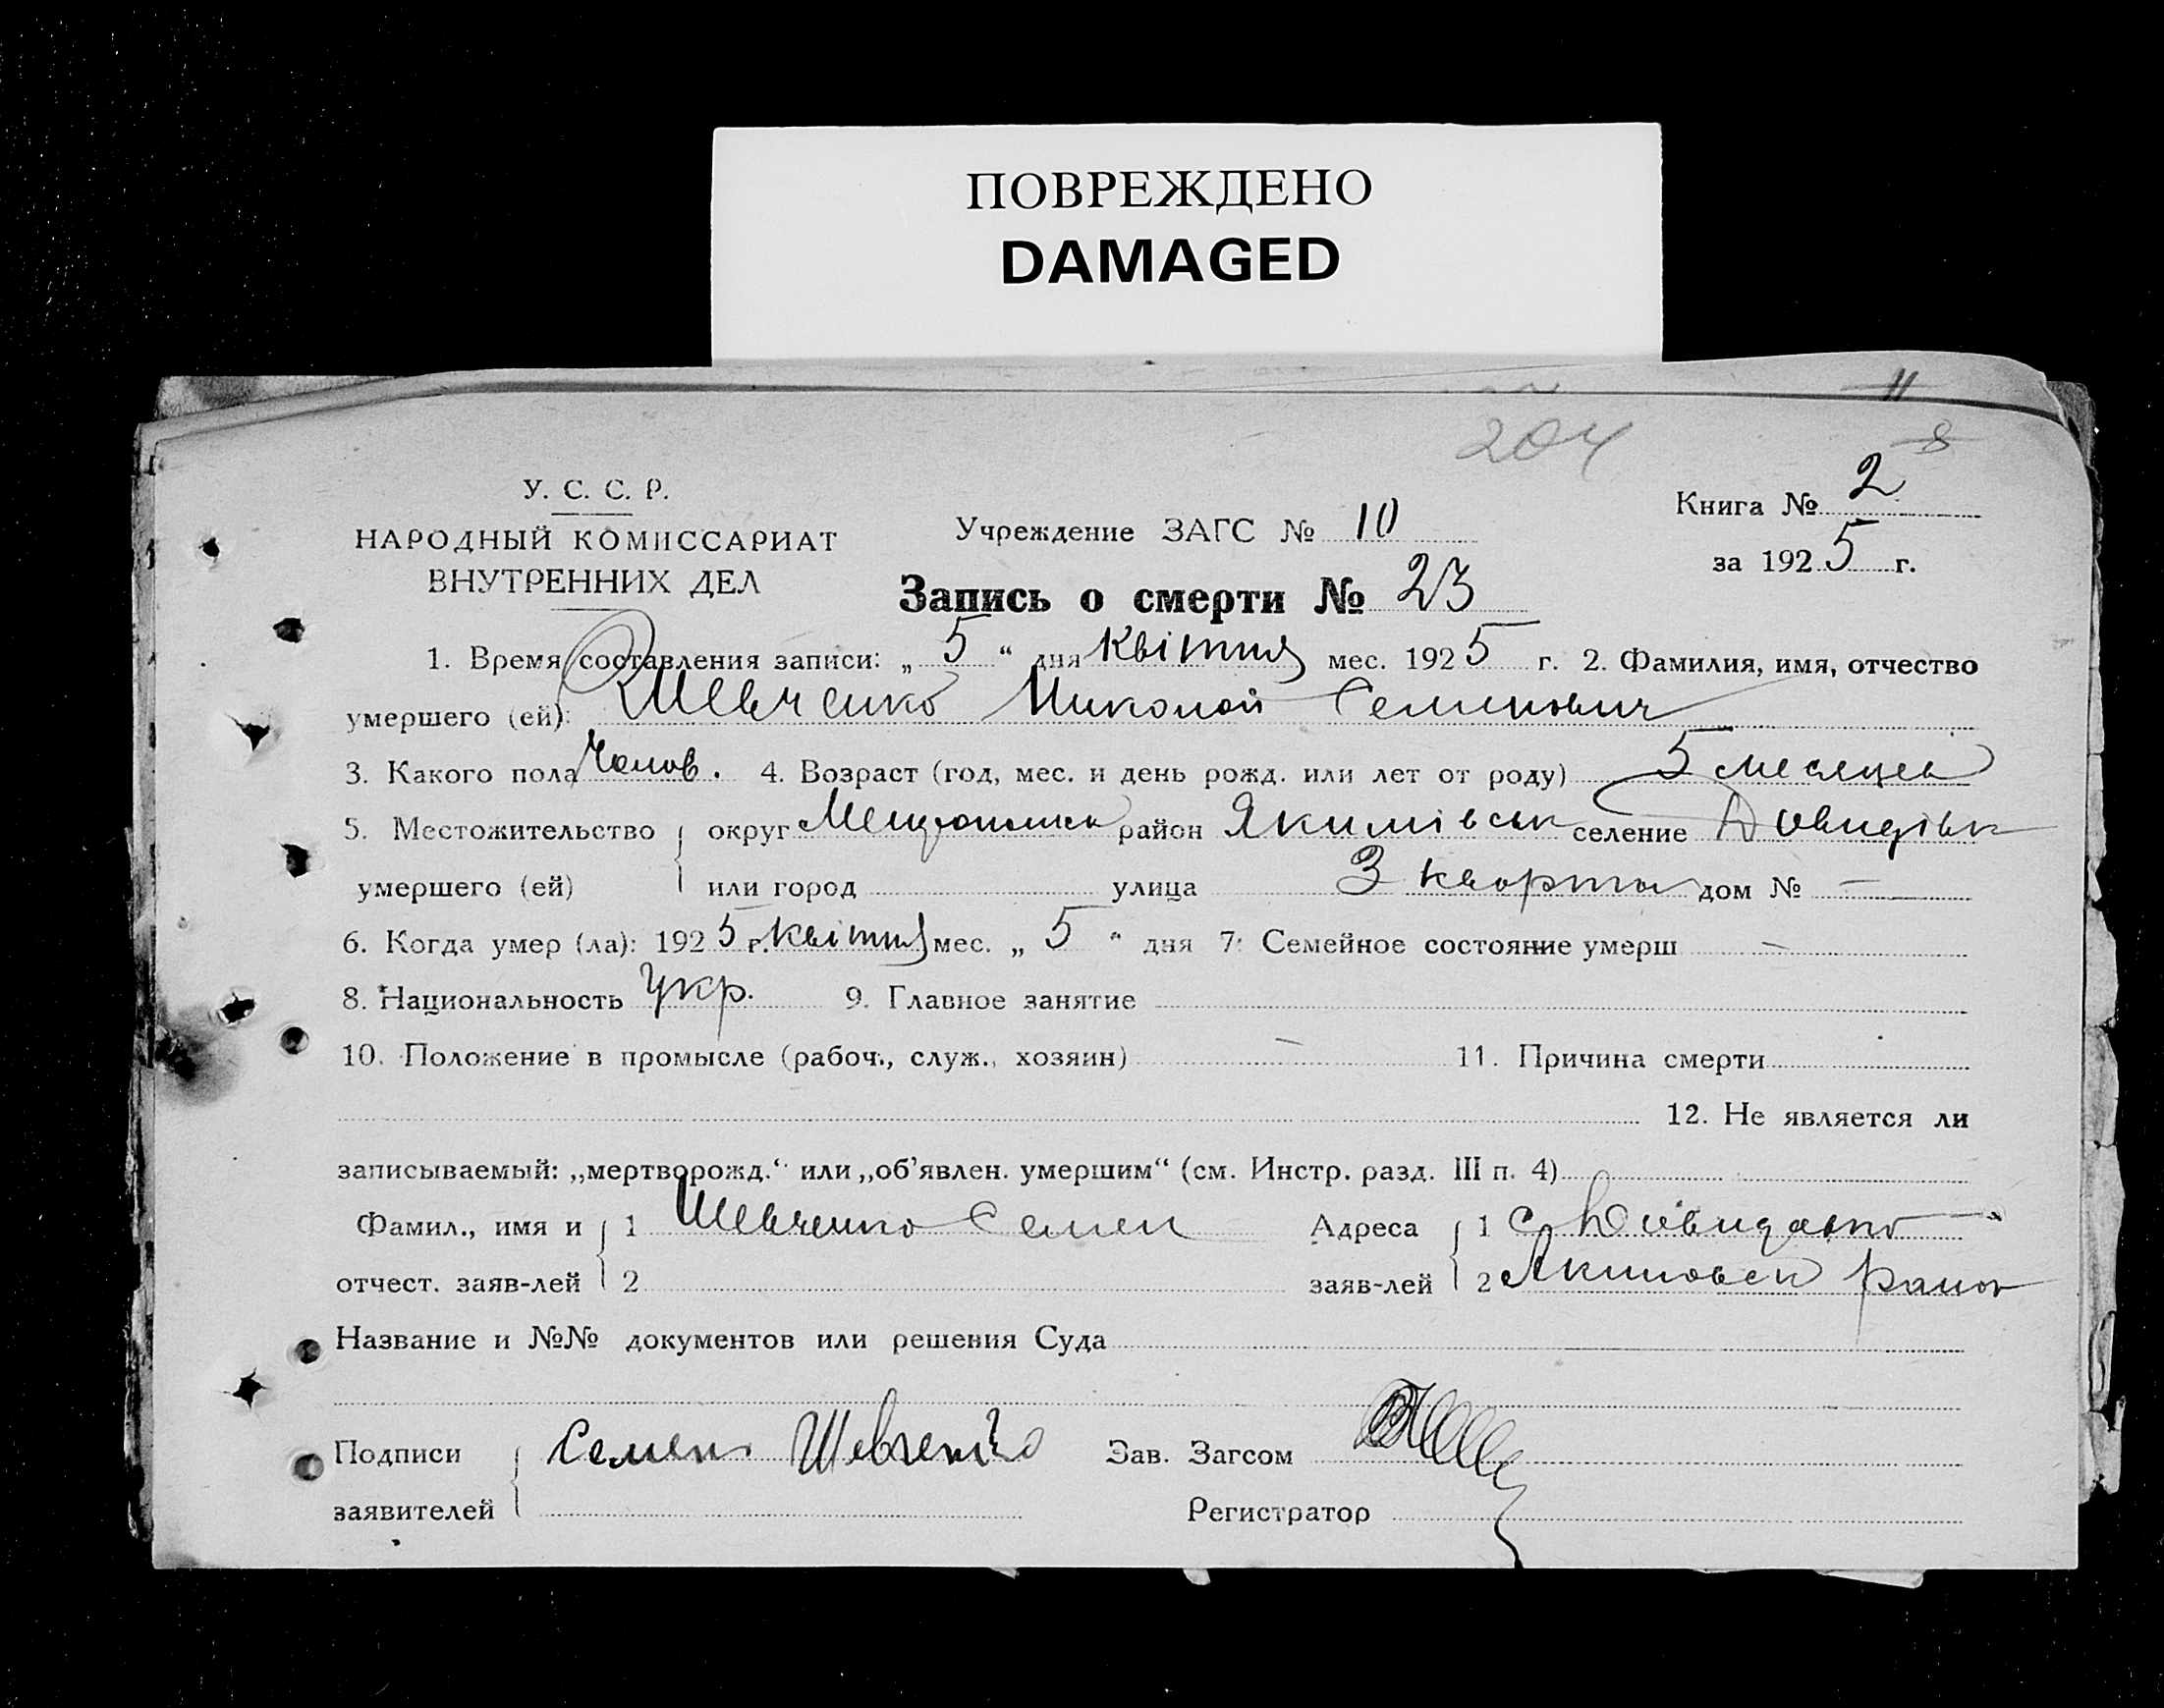 ПОВРЕЖДЕНО
DAMAGED
11
204
8
У. С. С. Р.
НАРОДНЫЙ КОМИССАРИАТ
ВНУТРЕННИХ ДЕЛ
Учреждение ЗАГС № 10
Книга № 2
за 1925 г.
Запись о смерти № 23
1. Время составления записи: „ 5 “ дня Квітня мес. 1925 г. 2. Фамилия, имя, отчество
умершего (ей): Шевченко Николай Семенович
3. Какого пола Чолов. 4. Возраст (год, мес. и день рожд. или лет от роду) 5 месяцев
5. Местожительство округ район Якимівськ селение Давидівк
умершего (ей) или город улица 3 кварта дом № —
6. Когда умер (ла): 1925 г. квітня мес. „ 5 “ дня 7. Семейное состояние умерш —
8. Национальность Укр. 9. Главное занятие
10. Положение в промысле (рабоч., служ., хозяин) — 11. Причина смерти
12. Не является ли
записываемый: „мертворожд.“ или „об’явлен. умершим“ (см. Инстр. разд. III п. 4)
Фамил., имя и 1 Шевченко Семен Адреса 1 с.
отчест. заяв-лей 2 заяв-лей 2 Акимовск район
Название и №№ документов или решения Суда
Подписи Семен Шевченко Зав. Загсом
заявителей Регистратор